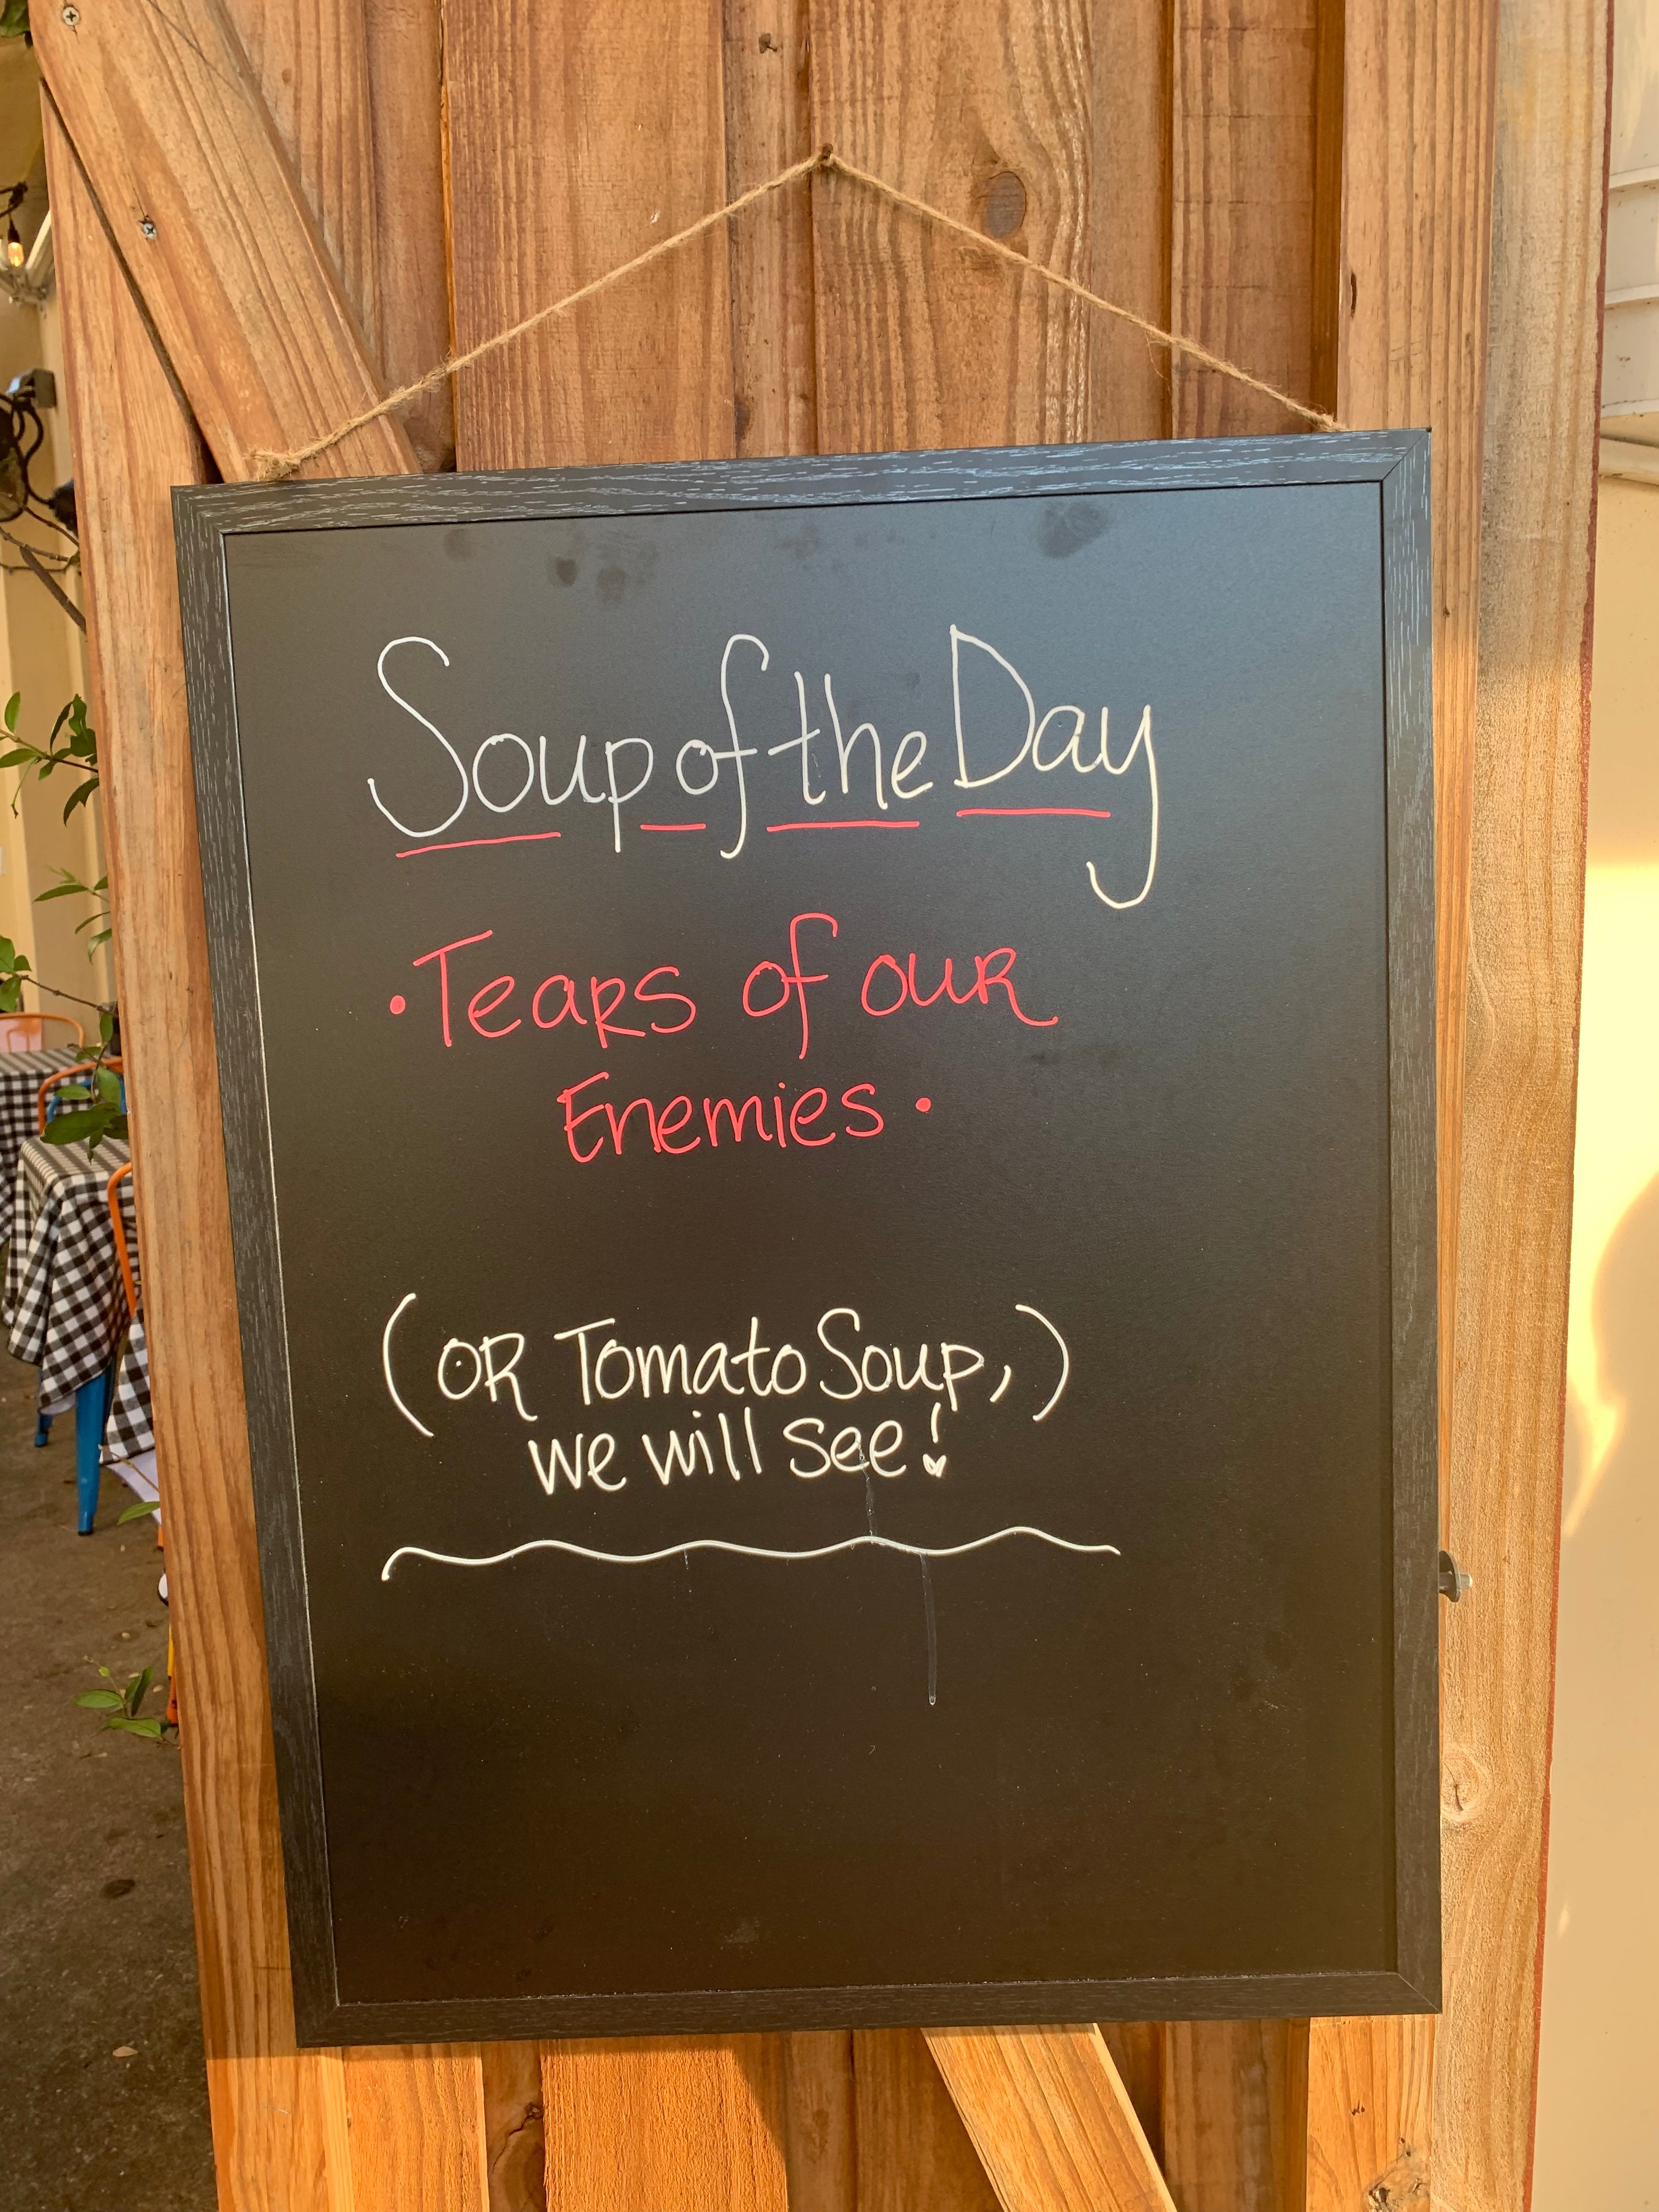 Soup of the Day
• Tears of our
Enemies •
(or Tomato Soup,)
we will see!